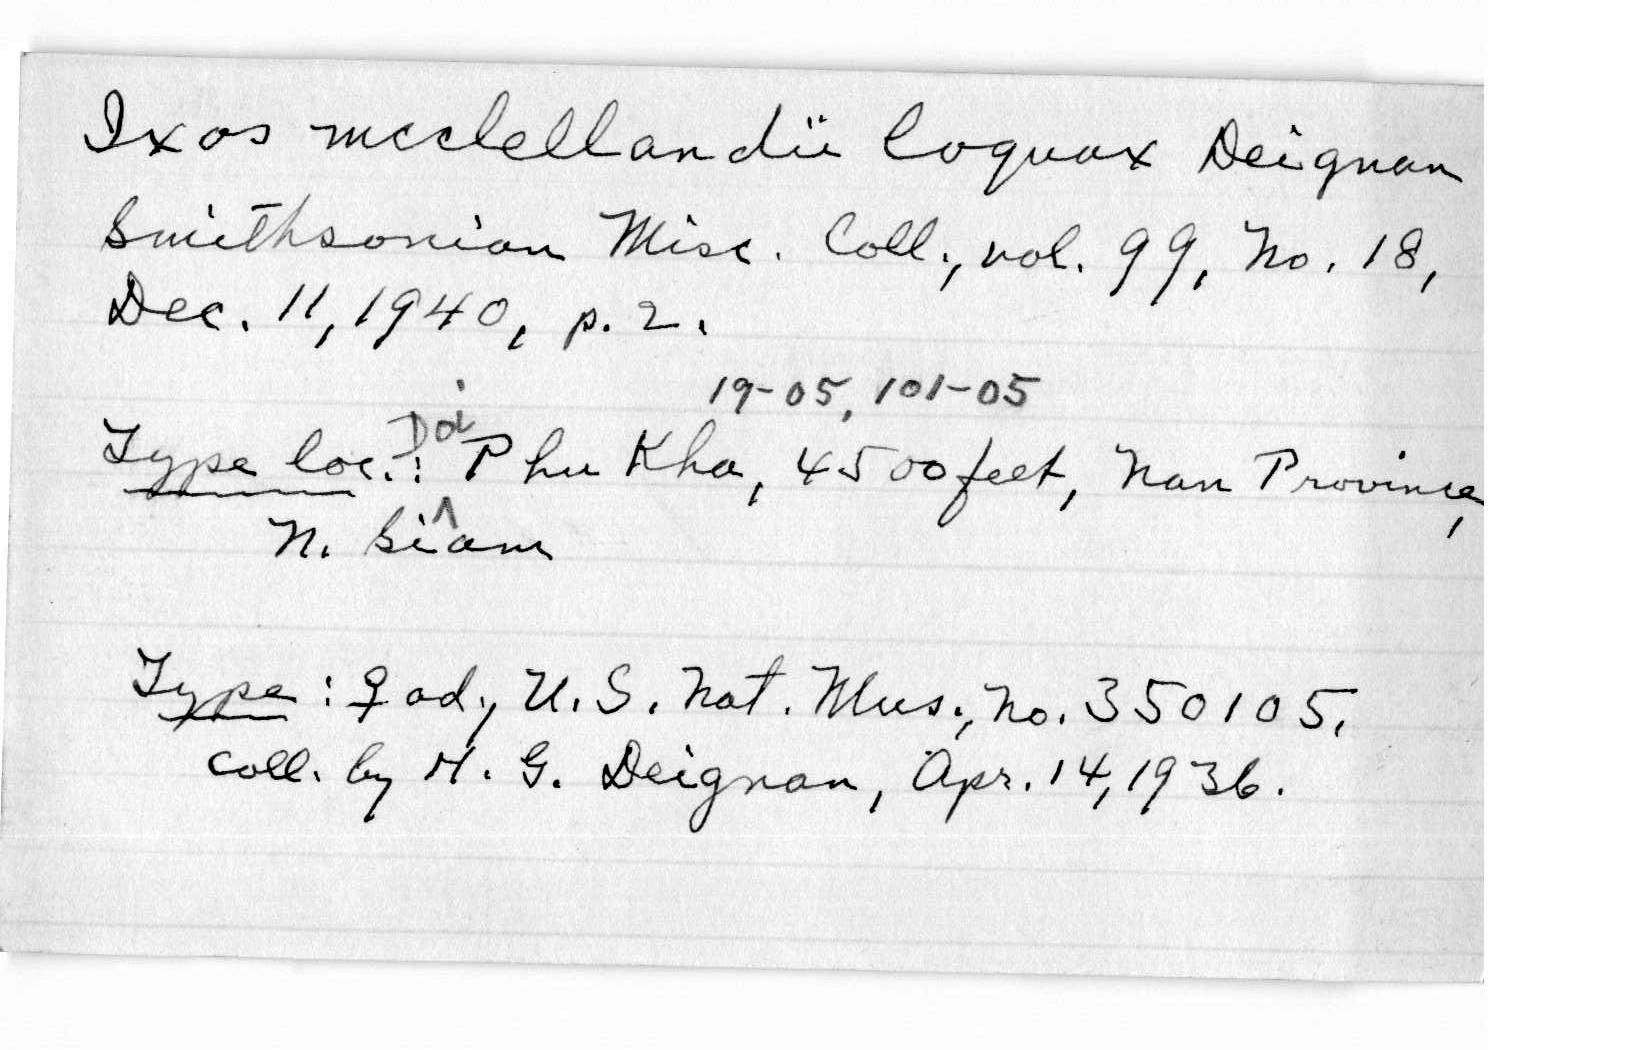 Ixos mcclellandii loquax Deignan
Smithsonian Misc. Coll., vol. 99, No. 18,
Dec. 11, 1940, p. 2.
19-05, 101-05
Type loc.: Doi Phu Kha, 4500 feet, Nan Province,
N. Siam
Type: ♀ ad., U.S. Nat. Mus., No. 350105,
coll. by H. G. Deignan, Apr. 14, 1936.